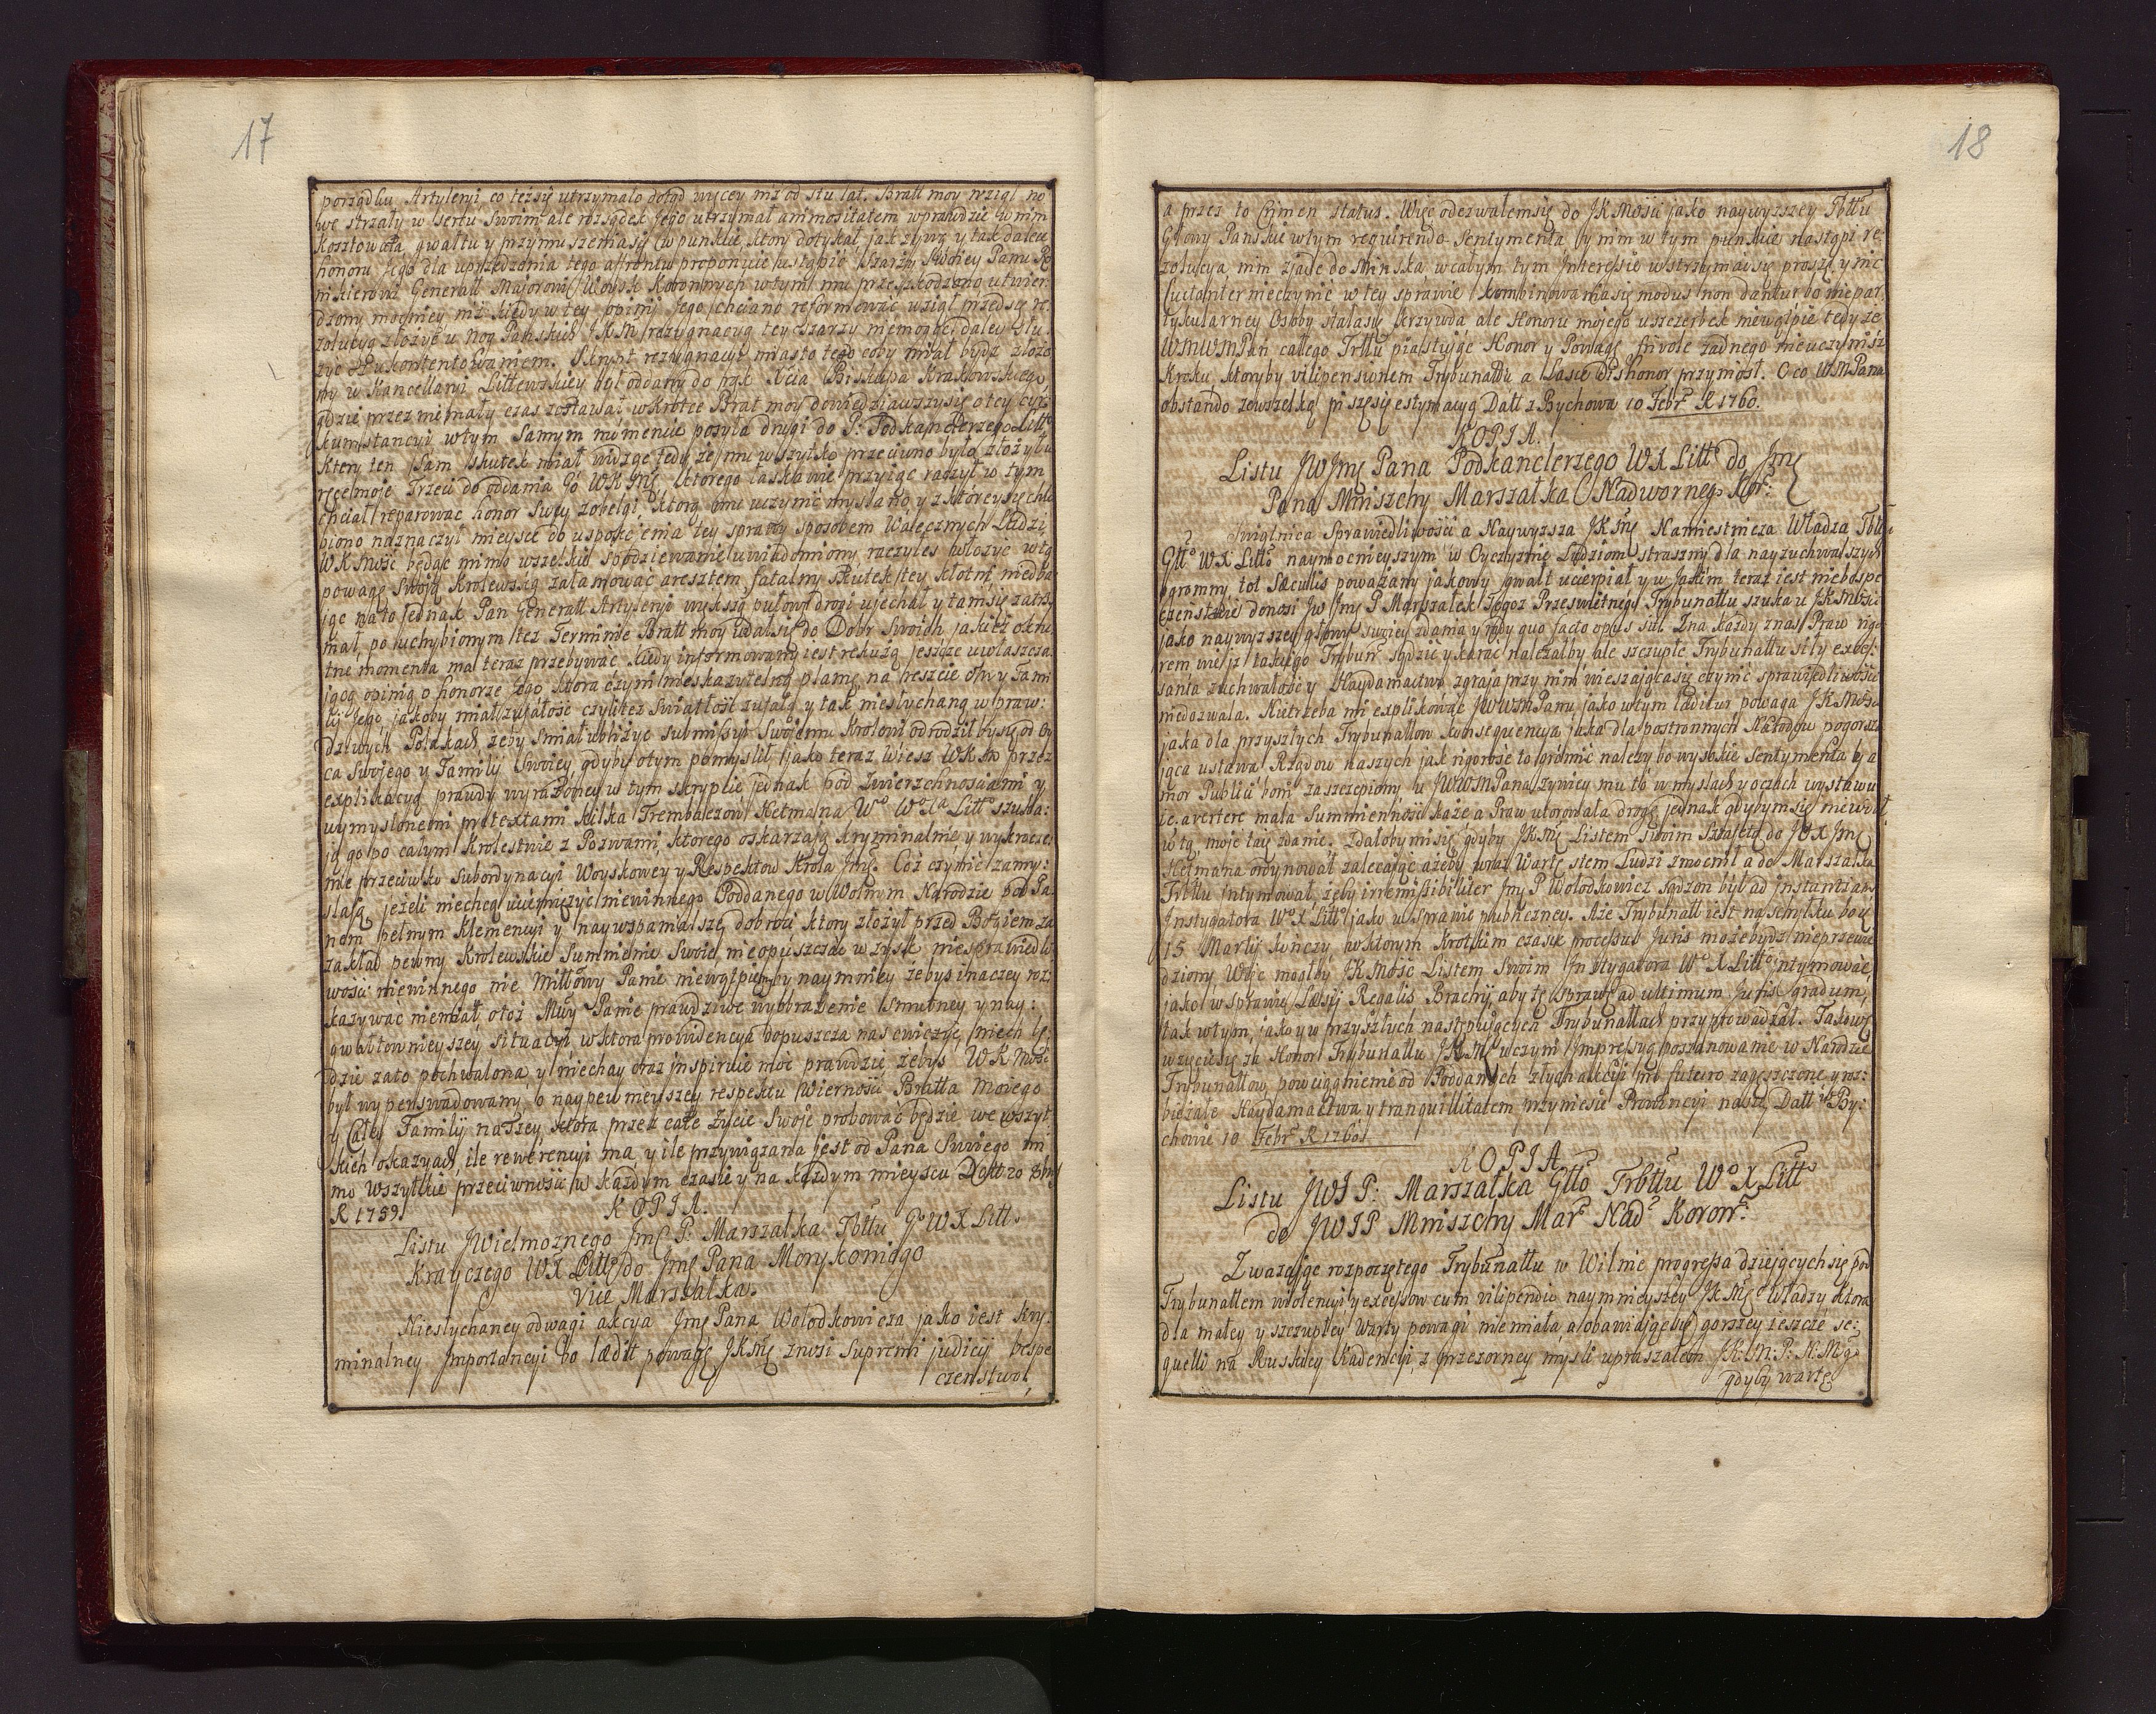 17
porządku Artyleryi co teźsij utrzymało dotąd więcey niż od stu lat. Bratt moy wziął no
we strzały w sercu swoim ale rozsądek Jego utrzymał ammositatem wprawdzie w nim
Kosztowała gwałtu y przymuszenia się w punkcie ktory dotykał jak żywą y tak dalece
honoru Jego dla uprzedzenia tego affrontu proponuie ustąpić Szarży swoiey Panu
Generall Majorowi Woysk Koronnych wtym mu przeszkodzono utwier:
dzony mocniey niż kiedy w tey opinij Jego chciano reformować wziął przed się re:
zolucyą złożyć u nog Pańskich JKM rezygnacyą tey Szarży niemogąc daley słu
żyć z Ukontentowaniem. Skrypt rezygnacyi miasto tego coby miał bydź złożo
ny w Kancellaryi Littewskiey był oddany do rąk Xcia Biskupa Krakowskiego
gdzie przez niemały czas zostawał wkrotce Brat moy dowiedziawszy się o tey cyr:
kumstancyi wtym samym momencie posyła drugi do P: Podkanclerzego Litt:
Ktery ten sam skutek miał widząc tedy że mu wszytko przeciwno było złożył w
ręce moje Trzeci do oddania Go WK Mę ktorego łaskawie przyiąć raczył w tym
chciał reparować honor swoy zobelgi, ktorą mu uczynić myslano y z ktorey się chlu
biono naznaczył mieysce do uspokoienia tey sprawy sposobem Walecznych Ludzi
WK Mość będąc mimo wszelkie spodziewanie uwiadomiony raczyłes włożyć w tę
powagę Swoją Krolewską zatamować aresztem fatalny skutek tey kłotni niedba
jąc na to jednak Pan Generall Artyleryi wyksią putowi drogi ujechał y tam się zatrzy
mał, po uchybionym też Terminie Bratt moy udał się do Dobr Swoich jakież okru
tne momenta ma teraz przebywać kiedy informowany iest rekuzą jeszcze uwłaszcza
jącą opinią o honorze Jego ktora czyni nieskazytelną plamę na reszcie on y Fami
lij Jego jakoby miał zuchwałość czyliteż swiatłość zufałą y tak niesłychaną w praw:
dziwych Polakach żeby smiał ubliżyć submissyi Swojemu Krolowi odrodziłby się od Oy
ca Swojego y Familij Swoiey gdyby o tym pomyslił jako teraz Wiesz WKM przez
explikacyą prawdy wyrażoney w tym skrypcie jednak pod Zwierzchnosciami y
wymyslonemi pretextami kilka Trembaczow Hetmana Wo Wo Xa Litto szuka:
ją go po całym Krolestwie z Pozwami ktorego oskarżają kryminalnie y wykracze:
nie przeciwko Subordynacyi Woyskowey y Respektow Krola Jmę. Coż czynić zamy:
slają jeżeli niechcą uciemiężyć niewinnego Poddanego w Wolnym Narodzie pod Pa
nem pełnym Klemencyi y naywspanialszey dobroci ktory złożył przed Bogiem za
zakład pewny Krolewskie Summienie Swoie nieopuszczać w zysk niesprawiedli
wosci niewinnego nie Miłłowy Panie niewątpiemy by naymniey żebys inaczey roz
kazywać niemiał otoż Mwy Panie prawdziwe wyobrażenie smutney y nay:
gwałtownieyszey situacyi w ktora prowidencya dopuszcza nas cwiczyć, niech bę:
dzie zato pochwalona y niechay oraz inspiruie moc prawdzie żebys WK Mość
był wyperswadowany o naypewnieyszey respektu Wiernosci Bratta Mojego
y Całey Familij naszey ktora przez całe życie Swoje probować będzie we wszyt
kich okazyach, ile rewerencyi ma y ile przywiązana jest od Pana Swoiego im
mo wszytkie przeciwnosci w każdym czasie y na każdym mieyscu Datt 20
R 1759
KOPIA.
Listu JWielmożnego Jmę P. Marszałka Tbttu Go WX Litt.
Krayczego WX Litto do Jmę Pana Morykoniego
Vice Marszałka.
Niesłychaney odwagi akcya Jmę Pana Wołodkowicza jako iest kry:
minalney importancyi bo lædit powagę JKMę znosi Supremi judicij bespe
czenstwo,
18
a przez to Crimen status. Więc odezwałem się do JKMosci jako naywyzszey Tbttu
Głowy Panskie wtym requirendo Sentymenta y nim w tym punkcie nastąpi re:
zolucya nim zjadę do Minska w całym tym Interessie wstrzymaj się proszę y nic
cuctanter nieczynić w tey sprawie kombinowania się modus non dantur bo niepar
tykularney Osoby stała się krzywda ale Honoru mojego uszczerbek niewątpie tedy że
WMWMPan całego Trttu piastując Honor y Powagę sinvole żadnego nieuczynisz
Kroku, ktoryby vilipensionem Trybunałłu a Lasce Dishonor przyniosł. O co WMPana
obstando zewszelką piszę się estymacyą Datt z Bychowa 10 Febr. R 1760.
KOPIA.
Listu JWJmę Pana Podkanclerzego WX Litt do Jmę
Pana Mniszchy Marszałka Nadwornego Kor:
Swiątnica Sprawiedliwości a Naywyzsza JKMę Namiestnicza Władza Tbttu
Gtto WX Litto naymocnieyszym w Oyczyznie Ludziom straszny dla nayzuchwalszych
ogromny tot Sæculis poważany jakowy gwałt ucierpiał y w Jakim teraz iest niebespe
czenstwie donosi Jw Jmę P Marszałek Tegoż Przeswietnego Trybunałłu szuka u JKMosci
jako naywyzszey głowy swoiey zdania y rady quo facto opus sit. Zna każdy znas Praw rigo
rem wiele takiego Trybun. sądzić y karać należałby ale szczupłe Trybunałłu siły excel:
santa zuchwałość y Haydamactwo zgraja przy nim wieszająca się czynić sprawiedliwości
niedozwala. Nietrzeba mi explikować JWWMPanu jako wtym læditur powaga JKMosci
jaka dla przyszłych Trybunałłow konsequencya jaka dla postronnych Narodow pogorsza
jąca ustawa Rządow naszych jak rigorose to gromić należy bo wysokie Sentymenta y a
mor Publici boni zaszczepiony u JWWMPana żywiey mu to w myslach y oczach wystawu
ie. avertere mala Summienność każe a Praw utorowała drogę jednak gdybym się niewdał
w tą moje taię zdanie. Zdałoby mi się gdyby JKMę Listem swoim Sztafetą do JOX Jmę
Hetmana ordynował zalecając ażeby wraz Wartę stem Ludzi zmocnił a do Marszałka
Trttu intymował żeby irremissibiliter Jmę P Wołodkowicz sądzon był ad instantiam
Instygatora Wo X Litto jako w Sprawie publiczney. Aże Trybunałł iest na schyłku bo y
15 Martij kończy w ktorym krotkim czasie processub Juris możebydź nieprzewie
dziony Więc mogłby JK Mość Listem Swoim Instygatora Wo X Litto intymować
jako w Sprawie Læsij Regalis Brachij, aby tę sprawę ad ultimum Juris gradum
tak wtym, jako y w przyszłych następujących Trybunałłach przyprowadzał. Takowe
wzięcie się za Honor Trybunałłu JKMę uczyni impressyą poszanowanie w Narodzie
Trybunałłow, powciągnienie od Poddanych złych akcyi in futuro zagęszczone y roz:
bieżałe Haydamactwa y tranquillitatem przyniesie Prowincyi naszey Datt w By:
chowie 10 Febr. R 1760
KOPIA
Listu JWJP: Marszałka Gtto Trbttu Wo X Litto
do JWJP Mniszchy Mar. Nad. Koron.
Zważając rozpoczętego Trybunałłu w Wilnie progressa dziejących się pod
Trybunałłem violencyi y excessow cum vilipendio naymnieyszey JKMę Władzy ktora
dla małey y szczupłey Warty powagi niemiała a obawiając się gorszey ieszcze se:
quelli na Ruskiey Kadencyi, z przezorney mysli upraszałem JK: M: P: N: Mgo
gdyby wartę